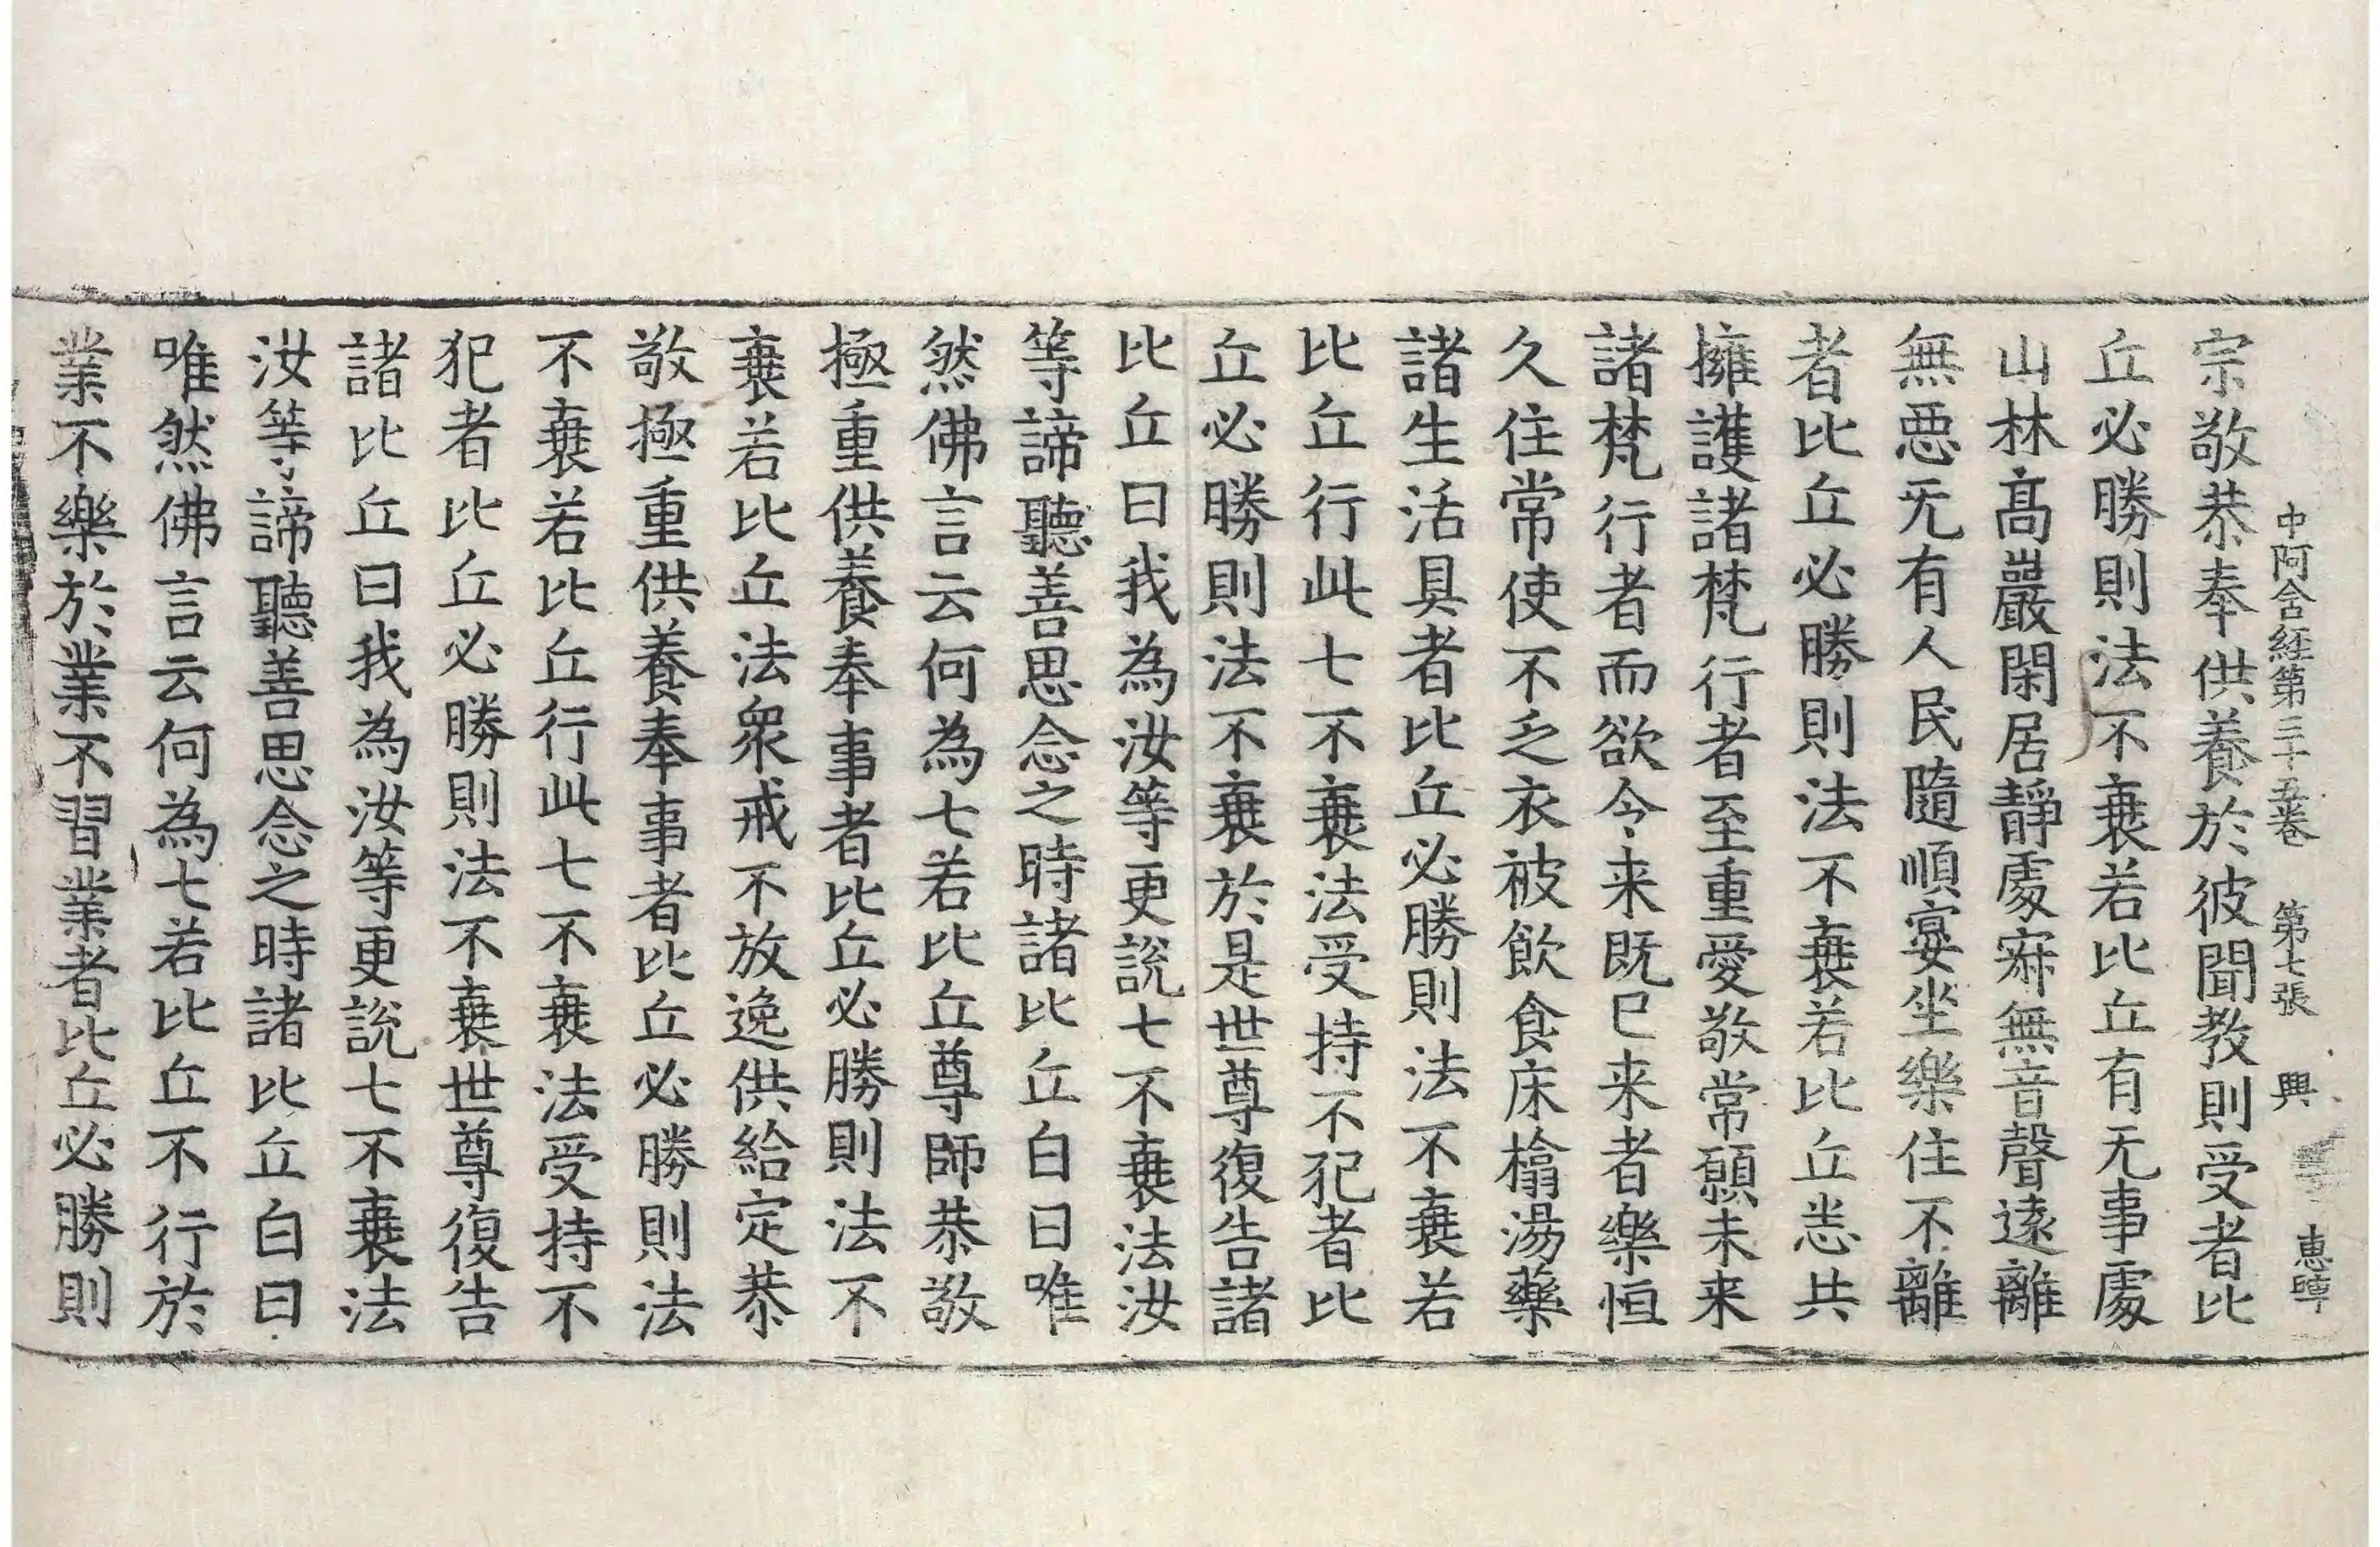 中阿含経第三十五卷 第七張 興 惠暲
宗敬恭奉供養於彼聞教則受者比
丘必勝則法不衰若比丘有无事處
山林高巖閑居靜處寂無音聲遠離
無悪无有人民隨順宴坐樂住不離
者比丘必勝則法不衰若比丘悉共
擁護諸梵行者至重愛敬常願未来
諸梵行者而欲令来既已来者樂恒
久住常使不乏衣被飲食床榻湯藥
諸生活具者比丘必勝則法不衰若
比丘行此七不衰法受持不犯者比
丘必勝則法不衰於是世尊復告諸
比丘曰我為汝等更說七不衰法汝
等諦聽善思念之時諸比丘白曰唯
然佛言云何為七若比丘尊師恭敬
極重供養奉事者比丘必勝則法不
衰若比丘法衆戒不放逸供給定恭
敬極重供養奉事者比丘必勝則法
不衰若比丘行此七不衰法受持不
犯者比丘必勝則法不衰世尊復告
諸比丘曰我為汝等更說七不衰法
汝等諦聽善思念之時諸比丘白曰
唯然佛言云何為七若比丘不行於
業不樂於業不習業者比丘必勝則